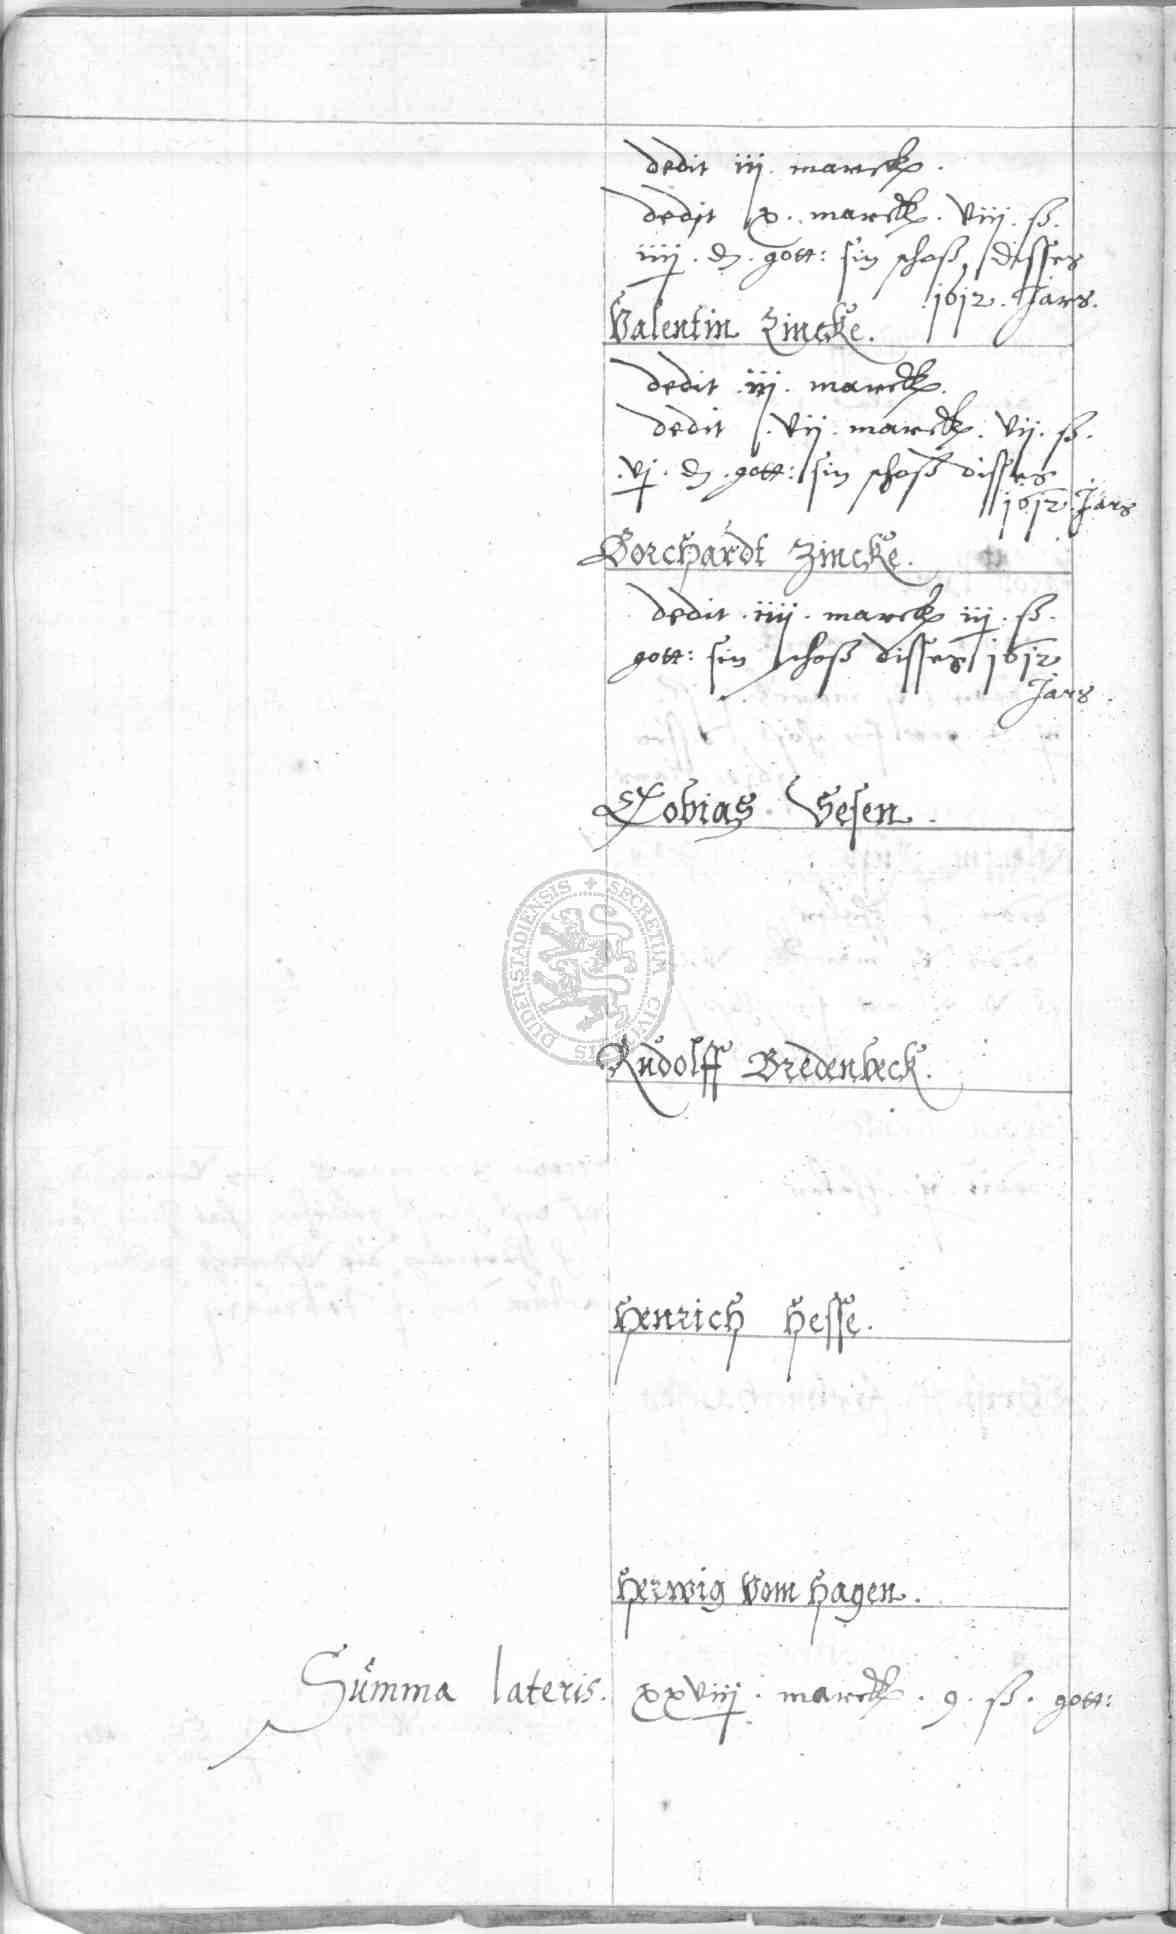 dedit iij. marck.
dedit x. marck. viij. ß.
iiij. d. gött: sin schoß disses
1612. Jars.
Valentin Zincke.
dedit .iij. marck.
dedit .vij. marck. vij. ß.
.vj. d. gött: sin schoß disses
1612 Jars
Borchardt Zincke.
dedit .iiij. marck iij. ß.
gött: sin schoß disses 1612
Jars.
Tobias Vesen.
DUDERSTADIENSIS + SECRETUM CIVIC
Rudolff Bredenbeck.
Henrich Hesse.
Herwig Vom Hagen.
Summa lateris. xxviij. marck. 9. ß. gött: